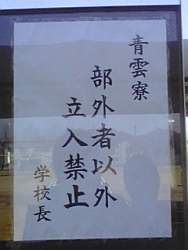 青雲寮
部外者以外
立入禁止
学校長